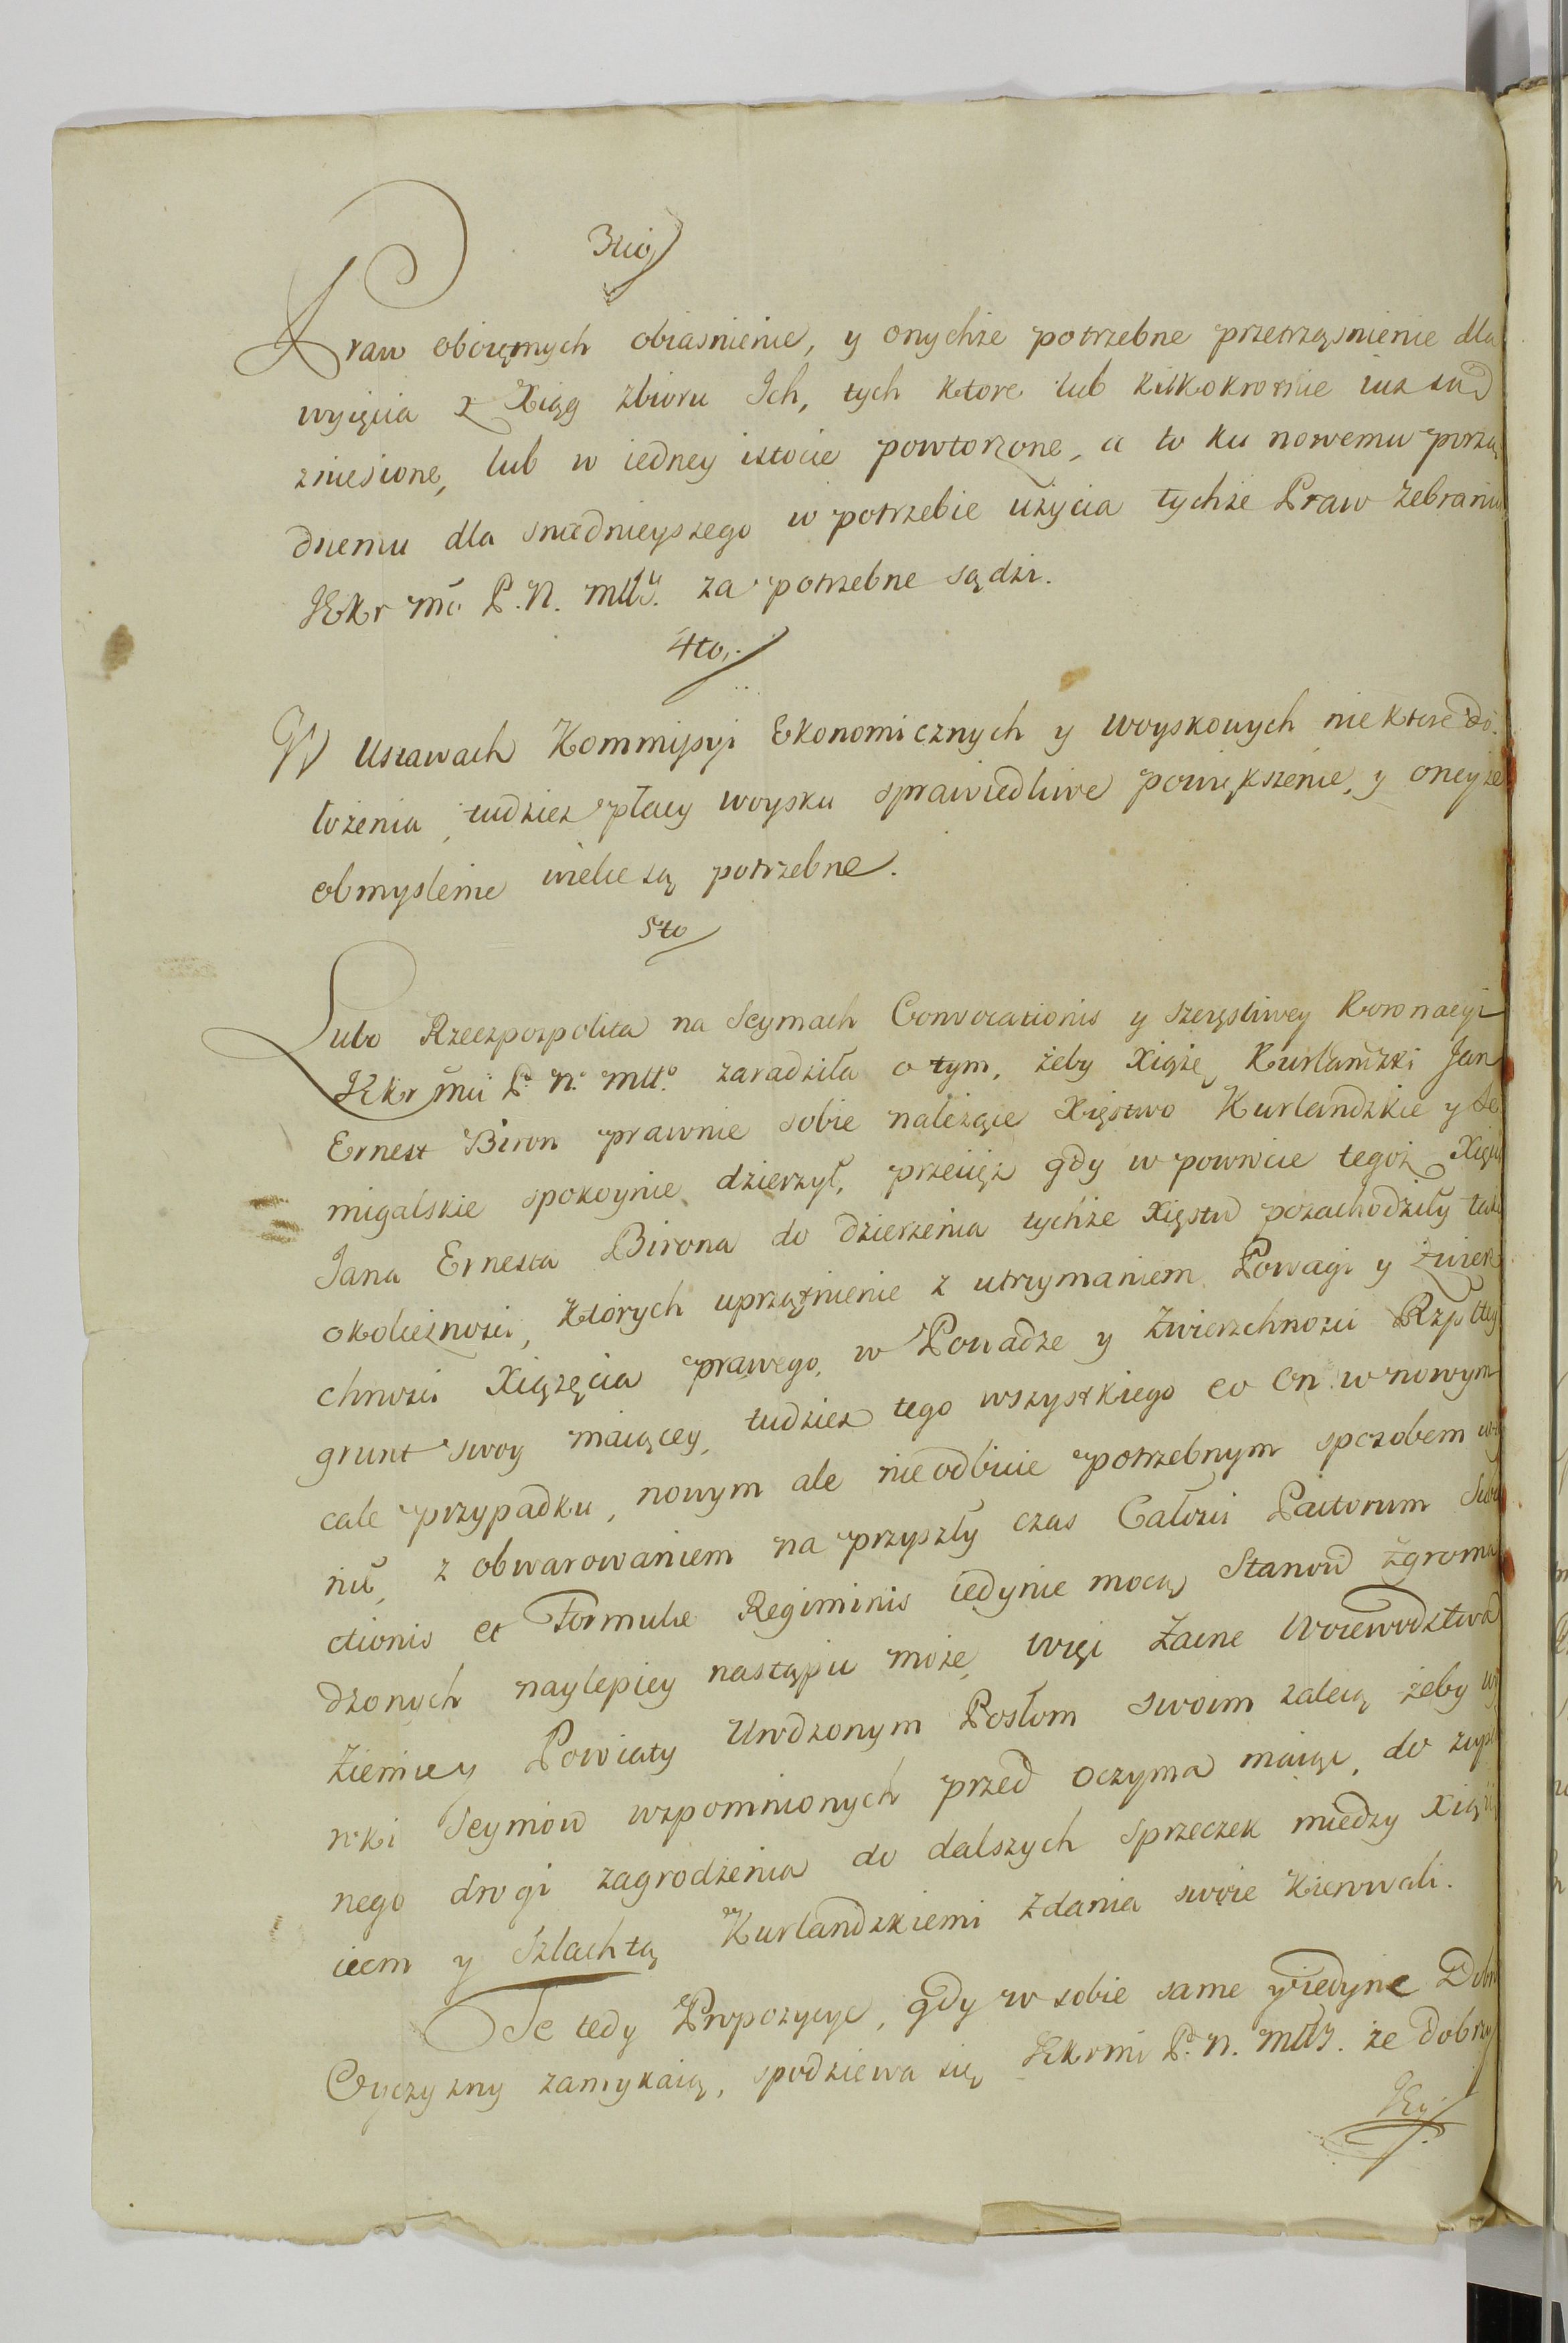 3tio
Praw obojętnych obiasnienie, y onychże potrzebne przetrząsnienie dla
wyięcia z Xiąg zbioru Ich, tych ktore lub kilkokrotnie iuż są
zniesione, lub w iedney istocie powtorzone, a to ku nowemu porzą
dnemu dla snadnieyszego w potrzebie użycia tychże Praw zebraniu
JKr mć P. N. Młł. za potrzebne sądzi.
4to.
W Ustawach Kommissyi Ekonomicznych y woyskowych niektore do
łożenia, tudzież płacy woysku sprawiedliwe powiększenie, y oneyże
obmyslenie wielce są potrzebne.
5to
Lubo Rzeczpospolita na Seymach Convocationis y szczęsliwey Koronacyi
JKr mci P. N. Młł. zaradziła o tym, żeby Xiąże Kurlandzki Jan
Ernest Biron prawnie sobie należące Xięstwo Kurlandzkie y Se
migalskie spokoynie dzierzył, przecięż gdy w powrocie tegoż Xięcia
Jana Ernesta Birona do dzierzenia tychże Xięstw pozachodziły takie
okoliczności, których uprzątnienie z utrzymaniem Powagi y Zwierz
chności Xiążęcia prawego, w Powadze y Zwierzchności Rzpltey
grunt swoy maiącey, tudzież tego wszystkiego co on w nowym
cale przypadku, nowym ale nieodbicie potrzebnym sposobem
nił, z obwarowaniem na przyszły czas Całości Pactorum Subie
ctionis et Formulae Regiminis iedynie mocą Stanow zgroma
dzonych naylepiey nastąpić może, więc Zacne Woiewodztwa
Ziemie y Powiaty Urodzonym Posłom swoim zalecą żeby wy
roki Seymow wspomnionych przed oczyma maiąc, do zupeł
nego drogi zagrodzenia do dalszych sprzeczek miedzy Xiążę
ciem y Szlachtą Kurlandzkiemi zdania swoie kierowali.
Te tedy Propozycye, gdy w sobie same y iedyne Dobro
Oyczyzny zamykaią, spodziewa się JKr mć P. N. Młł. że dobrzy
JEy